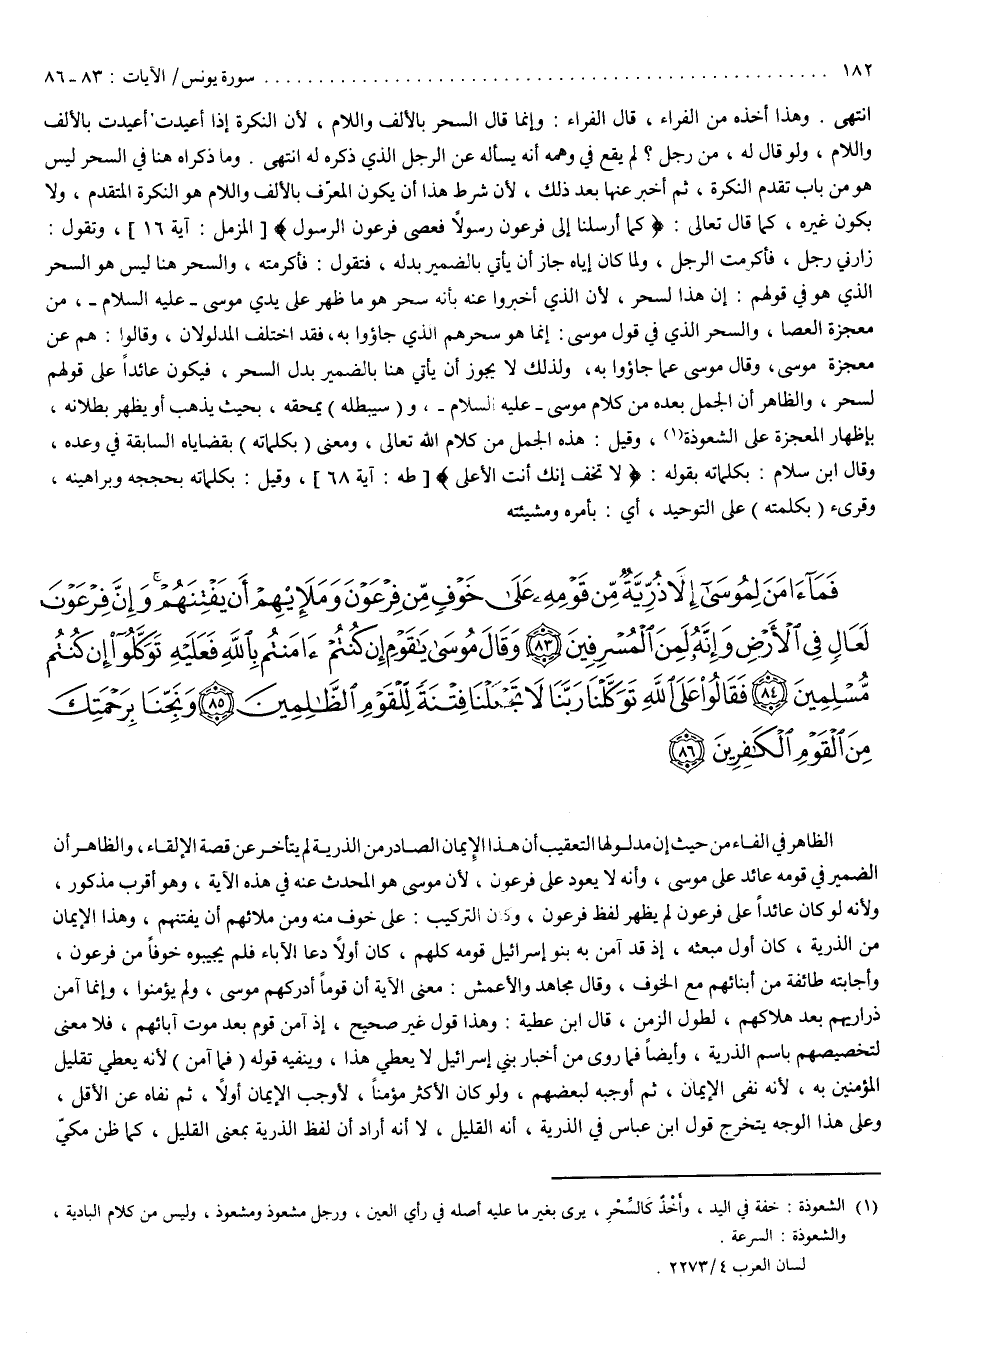 ١٨٢ . . . . . . . . . . . . . . . . . . . . . . . . . . . . . . . . . . . . . . . . سورة يونس/ الآيات : ٨٣ - ٨٦
انتهى . وهذا أخذه من الفراء ، قال الفراء : وإنما قال السحر بالألف واللام ، لأن النكرة إذا أعيدت أعيدت بالألف
واللام ، ولو قال له ، من رجل ؟ لم يقع في وهمه أنه يسأله عن الرجل الذي ذكره له انتهى . وما ذكراه هنا في السحر ليس
هو من باب تقدم النكرة ، ثم أخبر عنها بعد ذلك ، لأن شرط هذا أن يكون المعرّف بالألف واللام هو النكرة المتقدم ، ولا
يكون غيره ، كما قال تعالى : ﴿ كما أرسلنا إلى فرعون رسولاً فعصى فرعون الرسول ﴾ [ المزمل : آية ١٦ ] ، وتقول :
زارني رجل ، فأكرمت الرجل ، ولما كان إياه جاز أن يأتي بالضمير بدله ، فتقول : فأكرمته ، والسحر هنا ليس هو السحر
الذي هو في قولهم : إن هذا لسحر ، لأن الذي أخبروا عنه بأنه سحر هو ما ظهر على يدي موسى ـ عليه السلام ـ ، من
معجزة العصا ، والسحر الذي في قول موسى : إنما هو سحرهم الذي جاؤوا به ، فقد اختلف المدلولان ، وقالوا : هم عن
معجزة موسى ، وقال موسى عما جاؤوا به ، ولذلك لا يجوز أن يأتي هنا بالضمير بدل السحر ، فيكون عائداً على قولهم
لسحر ، والظاهر أن الجمل بعده من كلام موسى ـ عليه السلام ـ ، و ( سيبطله ) يمحقه ، بحيث يذهب أو يظهر بطلانه ،
بإظهار المعجزة على الشعوذة(١) ، وقيل : هذه الجمل من كلام الله تعالى ، ومعنى ( بكلماته ) بقضاياه السابقة في وعده ،
وقال ابن سلام : بكلماته بقوله : ﴿ لا تخف إنك أنت الأعلى ﴾ [ طه : آية ٦٨ ] ، وقيل : بكلماته بحججه وبراهينه ،
وقرىء ( بكلمته ) على التوحيد ، أي : بأمره ومشيئته
فَمَآ ءَامَنَ لِمُوسَىٰٓ إِلَّا ذُرِّيَّةٌ مِّن قَوْمِهِۦ عَلَىٰ خَوْفٍ مِّن فِرْعَوْنَ وَمَلَإِيْهِمْ أَن يَفْتِنَهُمْ ۚ وَإِنَّ فِرْعَوْنَ
لَعَالٍ فِي ٱلْأَرْضِ وَإِنَّهُۥ لَمِنَ ٱلْمُسْرِفِينَ ٨٣ وَقَالَ مُوسَىٰ يَٰقَوْمِ إِن كُنتُمْ ءَامَنتُم بِٱللَّهِ فَعَلَيْهِ تَوَكَّلُوٓا۟ إِن كُنتُم
مُّسْلِمِينَ ٨٤ فَقَالُوا۟ عَلَى ٱللَّهِ تَوَكَّلْنَا رَبَّنَا لَا تَجْعَلْنَا فِتْنَةً لِّلْقَوْمِ ٱلظَّٰلِمِينَ ٨٥ وَنَجِّنَا بِرَحْمَتِكَ
مِنَ ٱلْقَوْمِ ٱلْكَٰفِرِينَ ٨٦
الظاهر في الفاء من حيث إن مدلولها التعقيب أن هذا الإيمان الصادر من الذرية لم يتأخر عن قصة الإلقاء ، والظاهر أن
الضمير في قومه عائد على موسى ، وأنه لا يعود على فرعون ، لأن موسى هو المحدث عنه في هذه الآية ، وهو أقرب مذكور ،
ولأنه لو كان عائداً على فرعون لم يظهر لفظ فرعون ، وكان التركيب : على خوف منه ومن ملائهم أن يفتنهم ، وهذا الإيمان
من الذرية ، كان أول مبعثه ، إذ قد آمن به بنو إسرائيل قومه كلهم ، كان أولاً دعا الآباء فلم يجيبوه خوفاً من فرعون ،
وأجابته طائفة من أبنائهم مع الخوف ، وقال مجاهد والأعمش : معنى الآية أن قوماً أدركهم موسى ، ولم يؤمنوا ، وإنما آمن
ذراريهم بعد هلاكهم ، لطول الزمن ، قال ابن عطية : وهذا قول غير صحيح ، إذ آمن قوم بعد موت آبائهم ، فلا معنى
لتخصيصهم باسم الذرية ، وأيضاً فما روى من أخبار بني إسرائيل لا يعطي هذا ، وينفيه قوله ( فما آمن ) لأنه يعطي تقليل
المؤمنين به ، لأنه نفى الإيمان ، ثم أوجبه لبعضهم ، ولو كان الأكثر مؤمناً ، لأوجب الإيمان أولاً ، ثم نفاه عن الأقل ،
وعلى هذا الوجه يتخرج قول ابن عباس في الذرية ، أنه القليل ، لا أنه أراد أن لفظ الذرية بمعنى القليل ، كما ظن مكيّ
(١) الشعوذة : خفة في اليد ، وأَخْذٌ كَالسِّحْرِ ، يرى بغير ما عليه أصله في رأي العين ، ورجل مشعوذ ومشعوذ ، وليس من كلام البادية ،
والشعوذة : السرعة .
لسان العرب ٢٢٧٣/٤ .